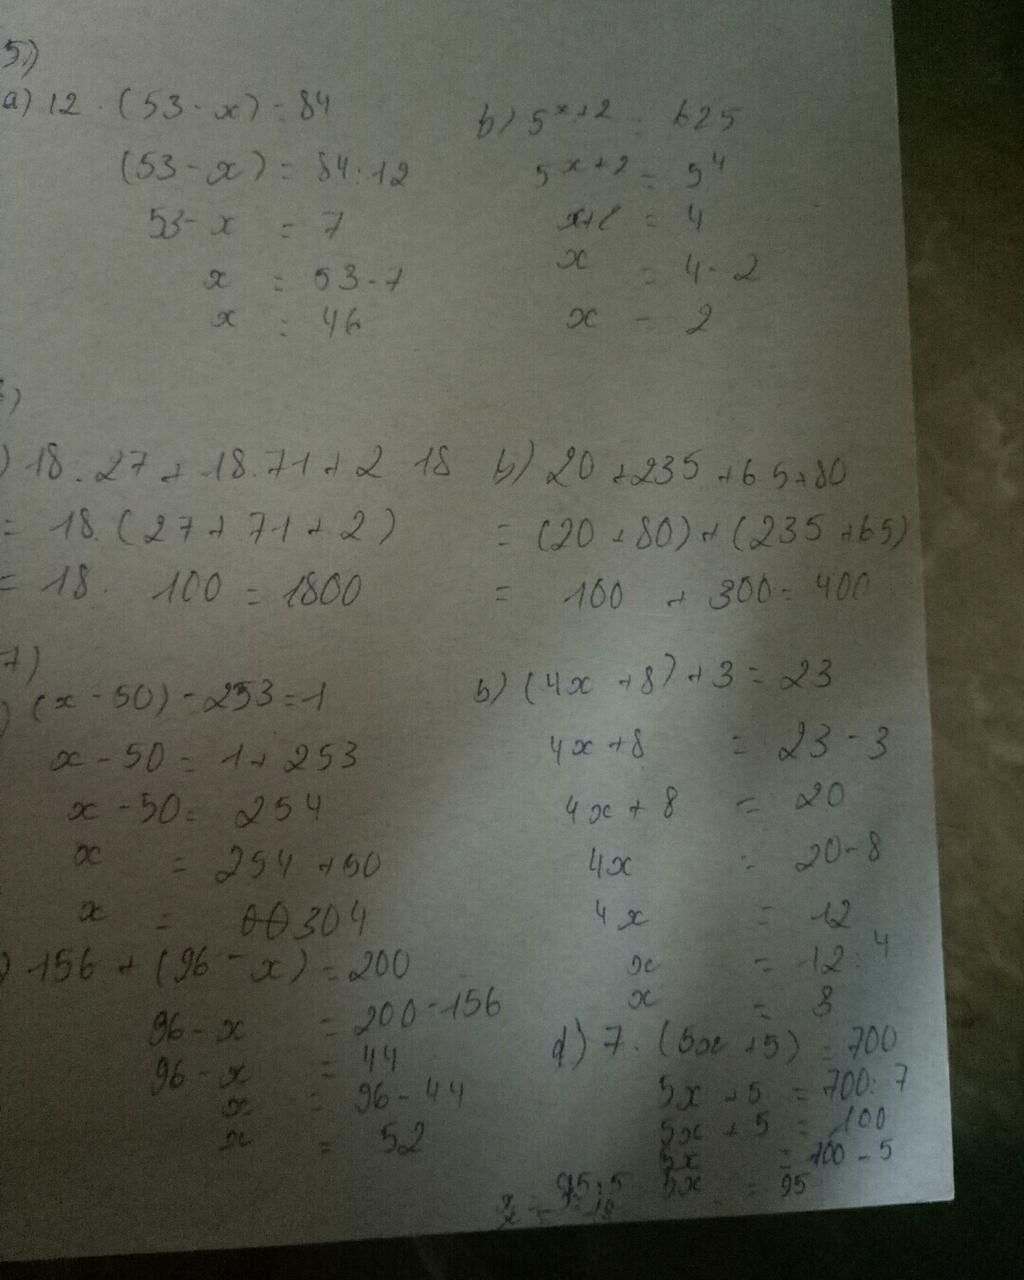 5)
a) 12 . (53 - x) = 84
(53 - x) = 84 : 12
53 - x = 7
x = 53 - 7
x = 46
b) 5^x+2 = 625
5^x+2 = 5^4
x+2 = 4
x = 4 - 2
x = 2
) 18 . 27 + 18 . 71 + 2 18
= 18. (27 + 71 + 2)
= 18 . 100 = 1800
b) 20 + 235 + 65 + 80
= (20 + 80) + (235 + 65)
= 100 + 300 = 400
7)
) (x - 50) - 253 = 1
x - 50 = 1 + 253
x - 50 = 254
x = 254 + 50
x = 304
b) (4x + 8) + 3 = 23
4x + 8 = 23 - 3
4x + 8 = 20
4x = 20 - 8
4x = 12
x = 12 : 4
x = 3
) 156 + (96 - x) = 200
96 - x = 200 - 156
96 - x = 44
x = 96 - 44
x = 52
d) 7 . (5x + 5) = 700
5x + 5 = 700 : 7
5x + 5 = 100
5x = 100 - 5
5x = 95
x = 95 : 5